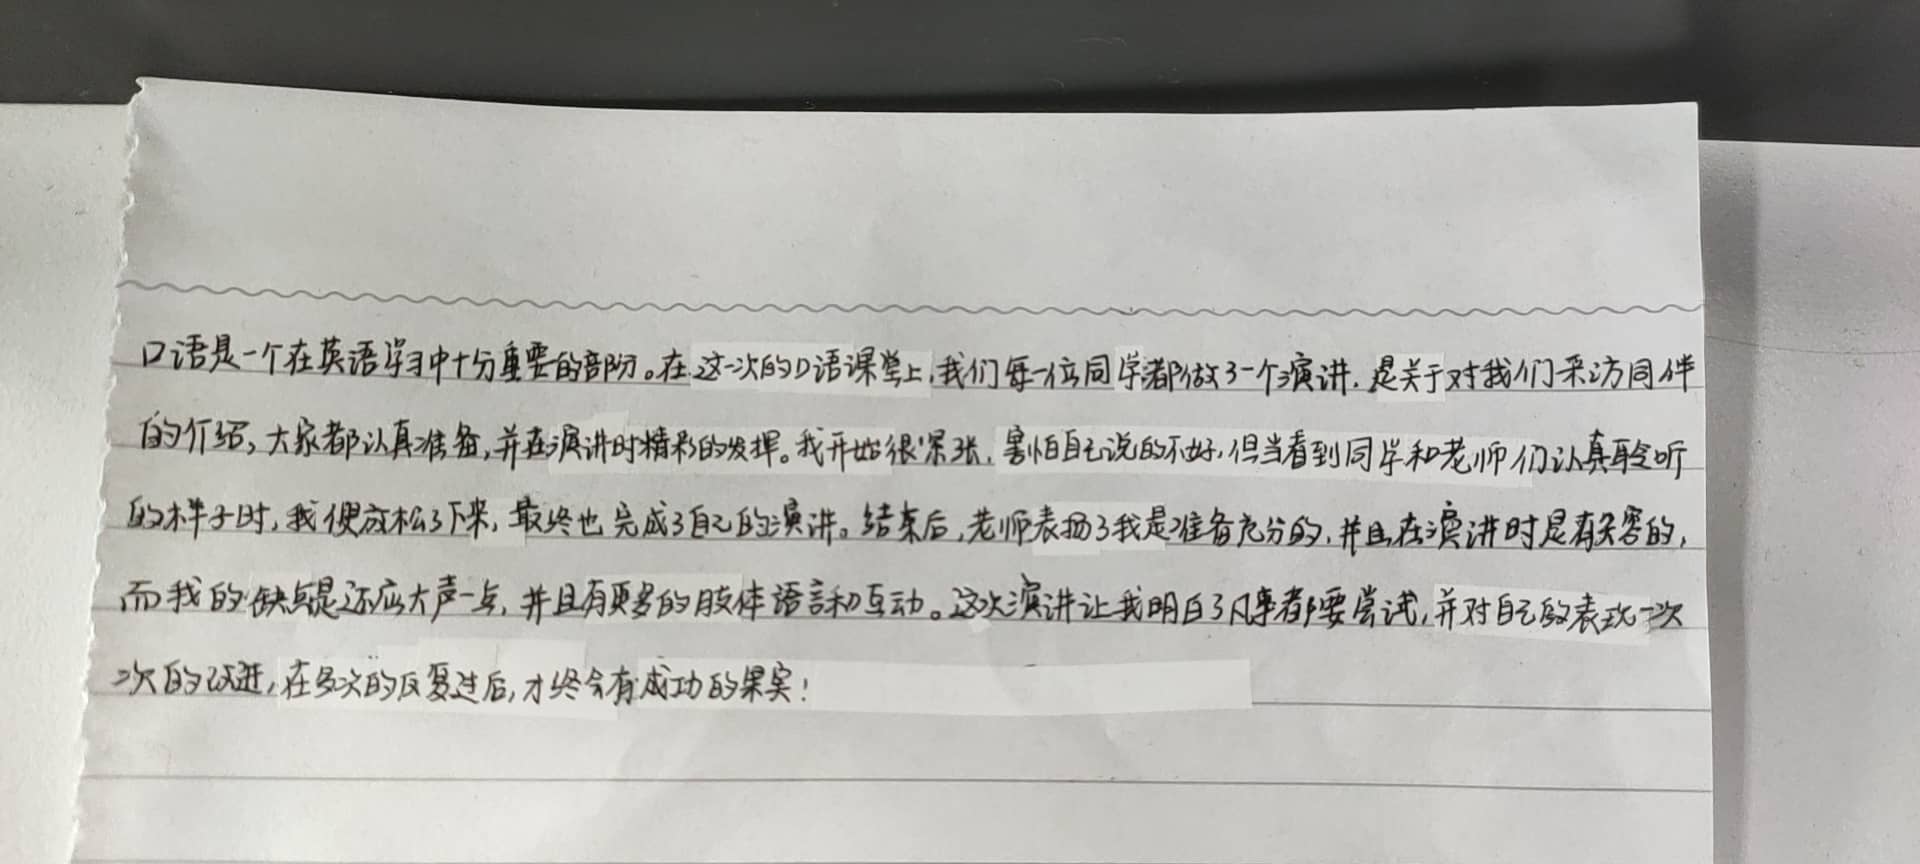 口语是一个在英语学习中十分重要的部份。在这一次的口语课堂上,我们每一位同学都做了一个演讲.是关于对我们采访同伴
的介绍,大家都认真准备,并在演讲时精彩的发挥。我开始很紧张.害怕自己说的不好,但当看到同学和老师们认真聆听
的样子时,我便放松了下来,最终也完成了自己的演讲。结束后,老师表扬了我是准备充分的,并且在演讲时是有笑容的,
而我的缺点是还应大声一点,并且有更多的肢体语言和互动。这次演讲让我明白了凡事都要尝试,并对自己的表现一次
次的改进,在多次的反复过后,才终会有成功的果实!